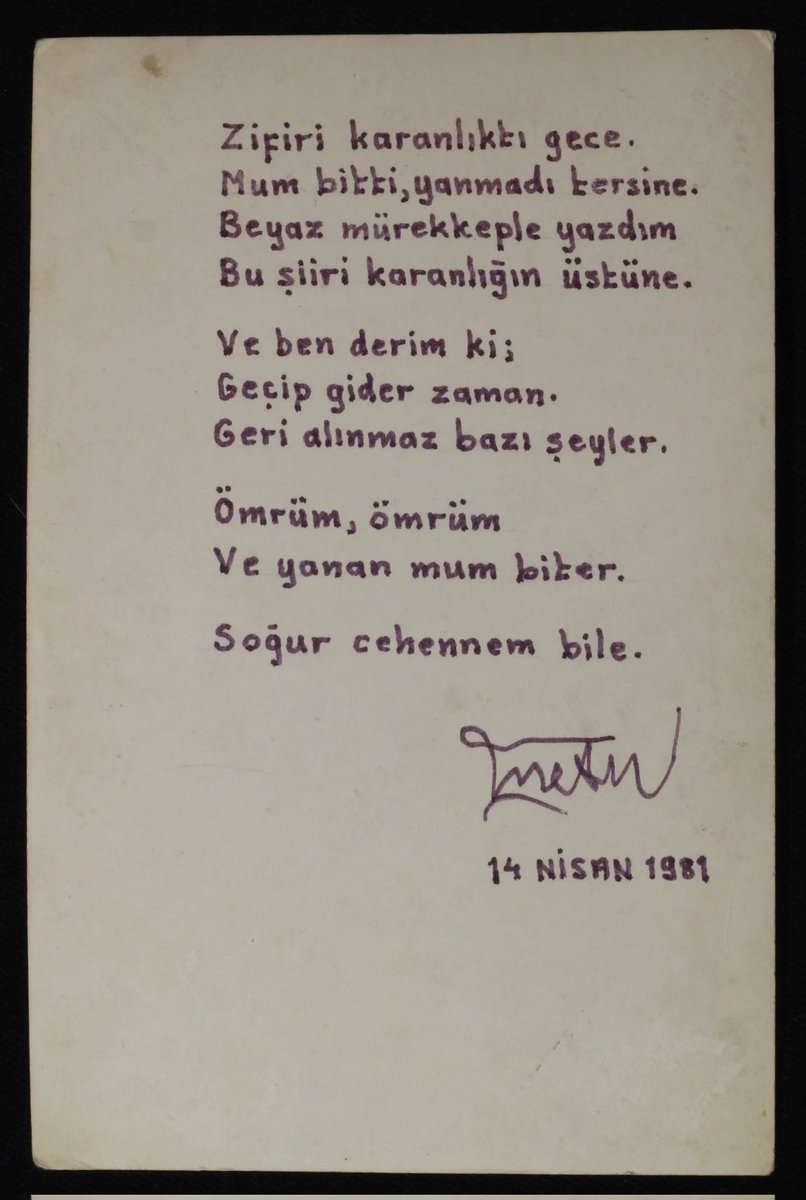 Zifiri karanlıktı gece.
Mum bitti, yanmadı tersine.
Beyaz mürekkeple yazdım
Bu şiiri karanlığın üstüne.
Ve ben derim ki;
Geçip gider zaman.
Geri alınmaz bazı şeyler.
Ömrüm, ömrüm
Ve yanan mum biter.
Soğur cehennem bile.
14 NİSAN 1981